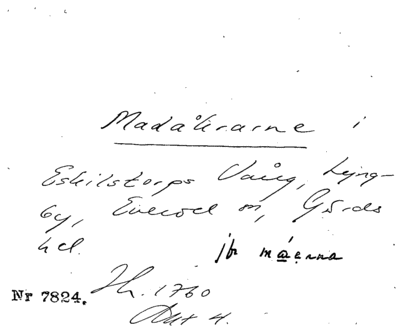 Madåkrarne i
Eskilstorps Vång, Lyng-
by, Everöd sn, Gärds
hd.
jfr
Nr 7824. Ch. 1760
Akt 4.